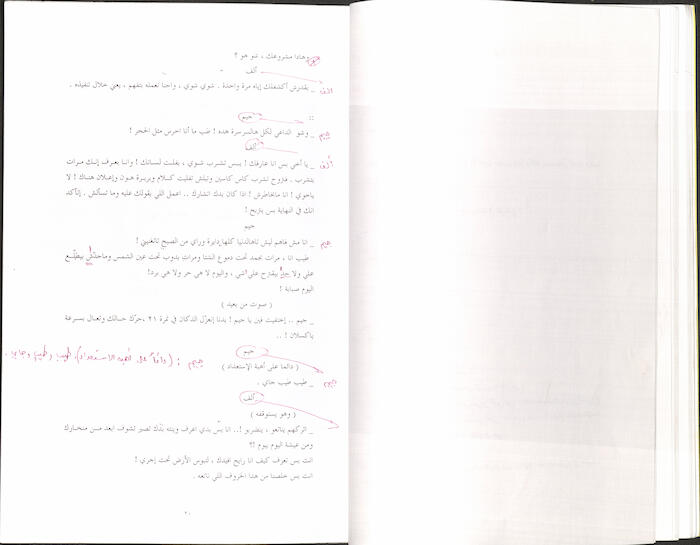 وهادا مشروعك ، شو هو ؟
ألف
الف _ بقدرش أكشفلك إياه مرة واحدة . شوي شوي ، واحنا نعمله بتفهم ، يعني خلال تنفيذه .
::
جيم
جيم _ وشو الداعي لكل هالسرسرة هذه ! طب ما أنا اخرس مثل الحجر !
ألف
ألف _ يا أخي بس انا عارفك ! بس تشرب شوي ، بفلت لسانك ! واننا بعرف إنك مرات
بتشرب . فتروح تشرب كاس كاسين وتبلش تفلت كلام وبربرة هون وإعلان هناك ! لا
ياخوي ! انا مابخاطرش ! اذا كان بدك اتشارك .. اعمل اللي بقولك عليه وما تسألش . إتأكد
انك في النهاية بس بتربح !
جيم
جيم _ انا مش فاهم ليش هالدنيا كلها دايرة وراي من الصبح
طيب انا ، مرات بجمد تحت دموع الشتا ومرات بدوب تحت عين الشمس وماحدش بيطلّع
علي ولا حدا بيقترح علي أشي ، واليوم لا هي حر ولا هي برد!
اليوم ضبابة !
( صوت من بعيد )
_ جيم .. إختفيت فين يا جيم ! بدنا إنعزّل الدكان في نمرة ٢١ ،حرّك حالك وتعال بسرعة
ياكسلان ! ..
جيم
( دائما على أهبة الإستعداد )
جيم : (دائماً على أهبة الاستعداد). طيب، طيب، جاي .
جيم _ طيب طيب جاي .
ألف
( وهو يستوقفه )
_ اتركهم يناتعو ، ينضربو !.. انا بسّ بدي اعرف وينته بدّك تصير تشوف ابعد من منخارك
ومن عيشة اليوم بيوم ؟!
انت بس تعرف كيف انا رايح افيدك ، لتبوس الأرض تحت إجري !
انت بس خلصنا من هذا الخروف اللي ناتعه .
٢٠